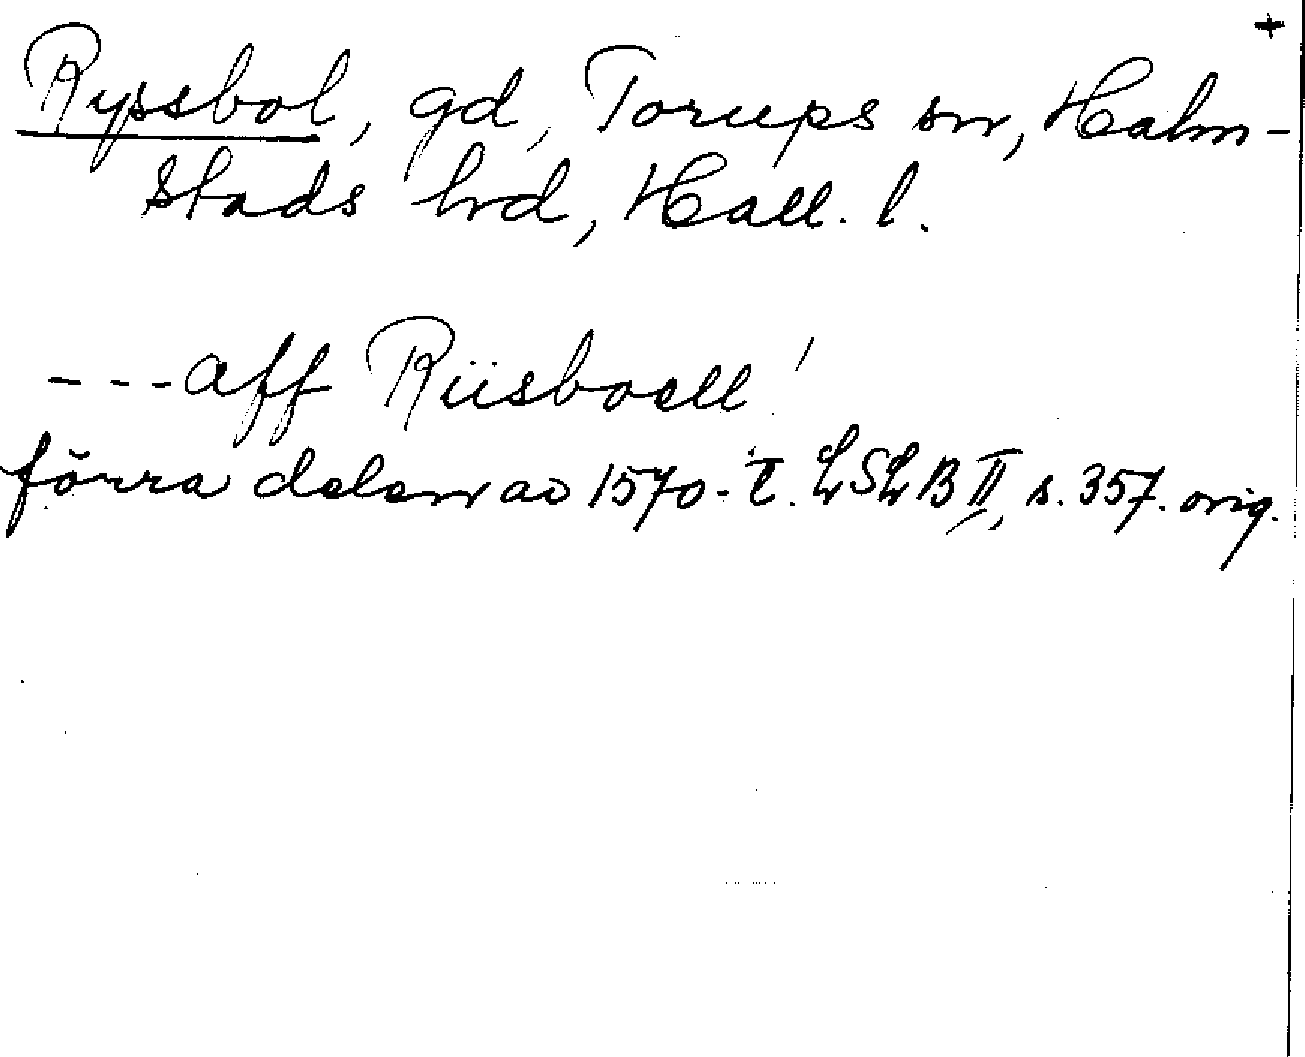 +
Ryssbol, gd, Torups sn, Halm-
stads hd, Hall. l.
---aff Riisboell!
förra delen av 1570-t. LSLB II, s. 357. orig.